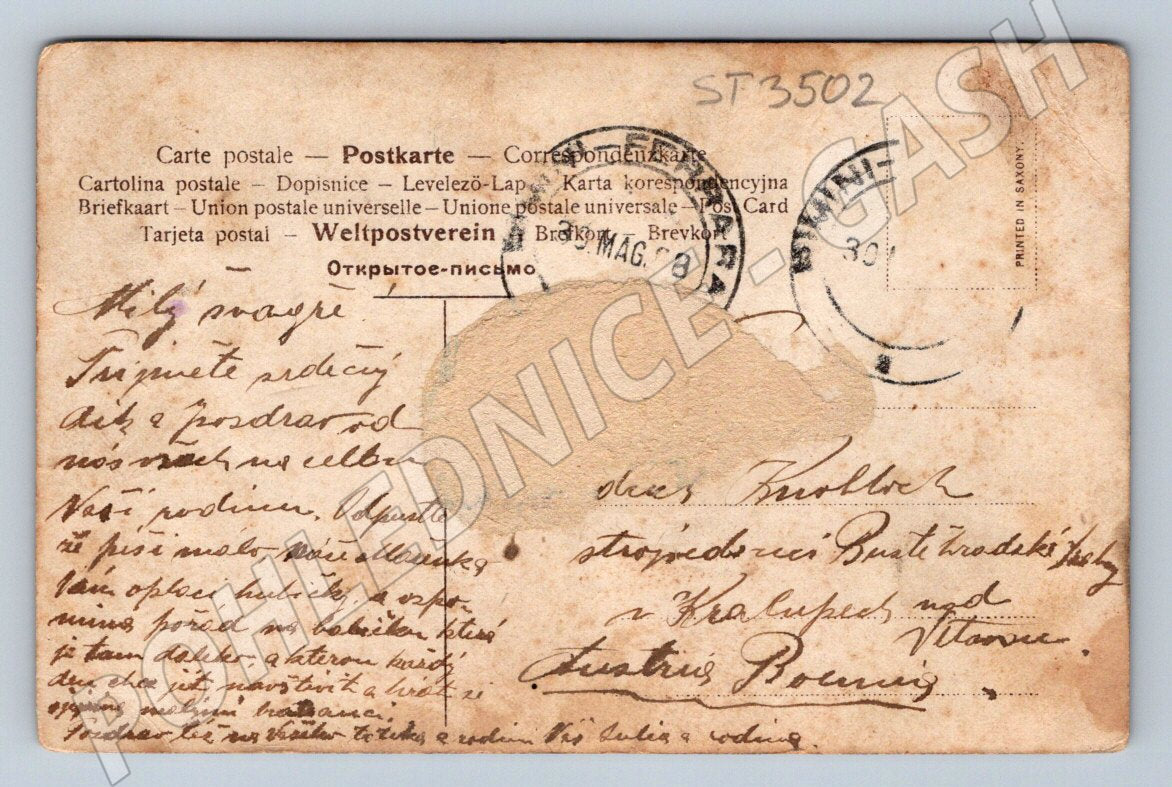 ST3502
Carte postale — Postkarte — Correspondenzkarte
Cartolina postale – Dopisnice – Levelező-Lap – Karta korespondencyjna
Briefkaart – Union postale universelle – Unione postale universale – Post Card
Tarjeta postal – Weltpostverein – Brefkort – Brevkort
Открытое-письмо
RIMINI-FERRARA
30 MAG.
RIMINI-
30
PRINTED IN SAXONY.
Milý švagře
Přijměte srdečný
dík a pozdrav od
nás všech na celou
Vaši rodinu. Odpusťte
že píši málo
Vám oplácí hubičky a vzpo-
míná pořád na babičku která
je tam daleko a kterou každý
den chce jít navštívit a hrát si
Pozdrav též na a rodinu Váš Julia a rodina.
Knobloch
strojvedoucí Buštěhradské dráhy
v Kralupech nad
Vltavou.
Austria Boemia
POHLEDNICE-GASH